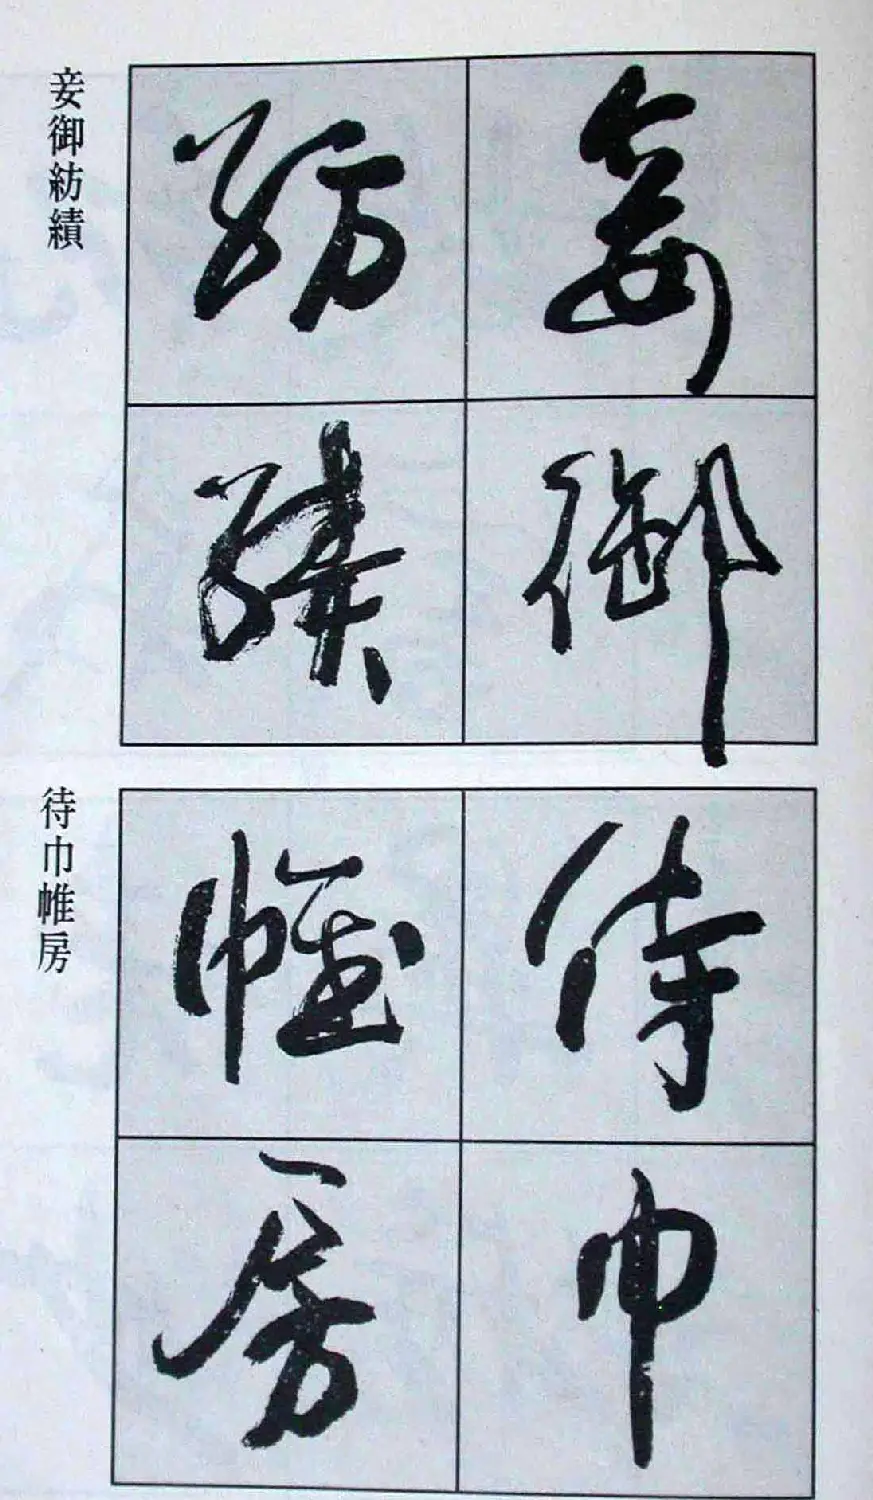 妾御
紡績
妾御紡績
侍巾
帷房
待巾帷房